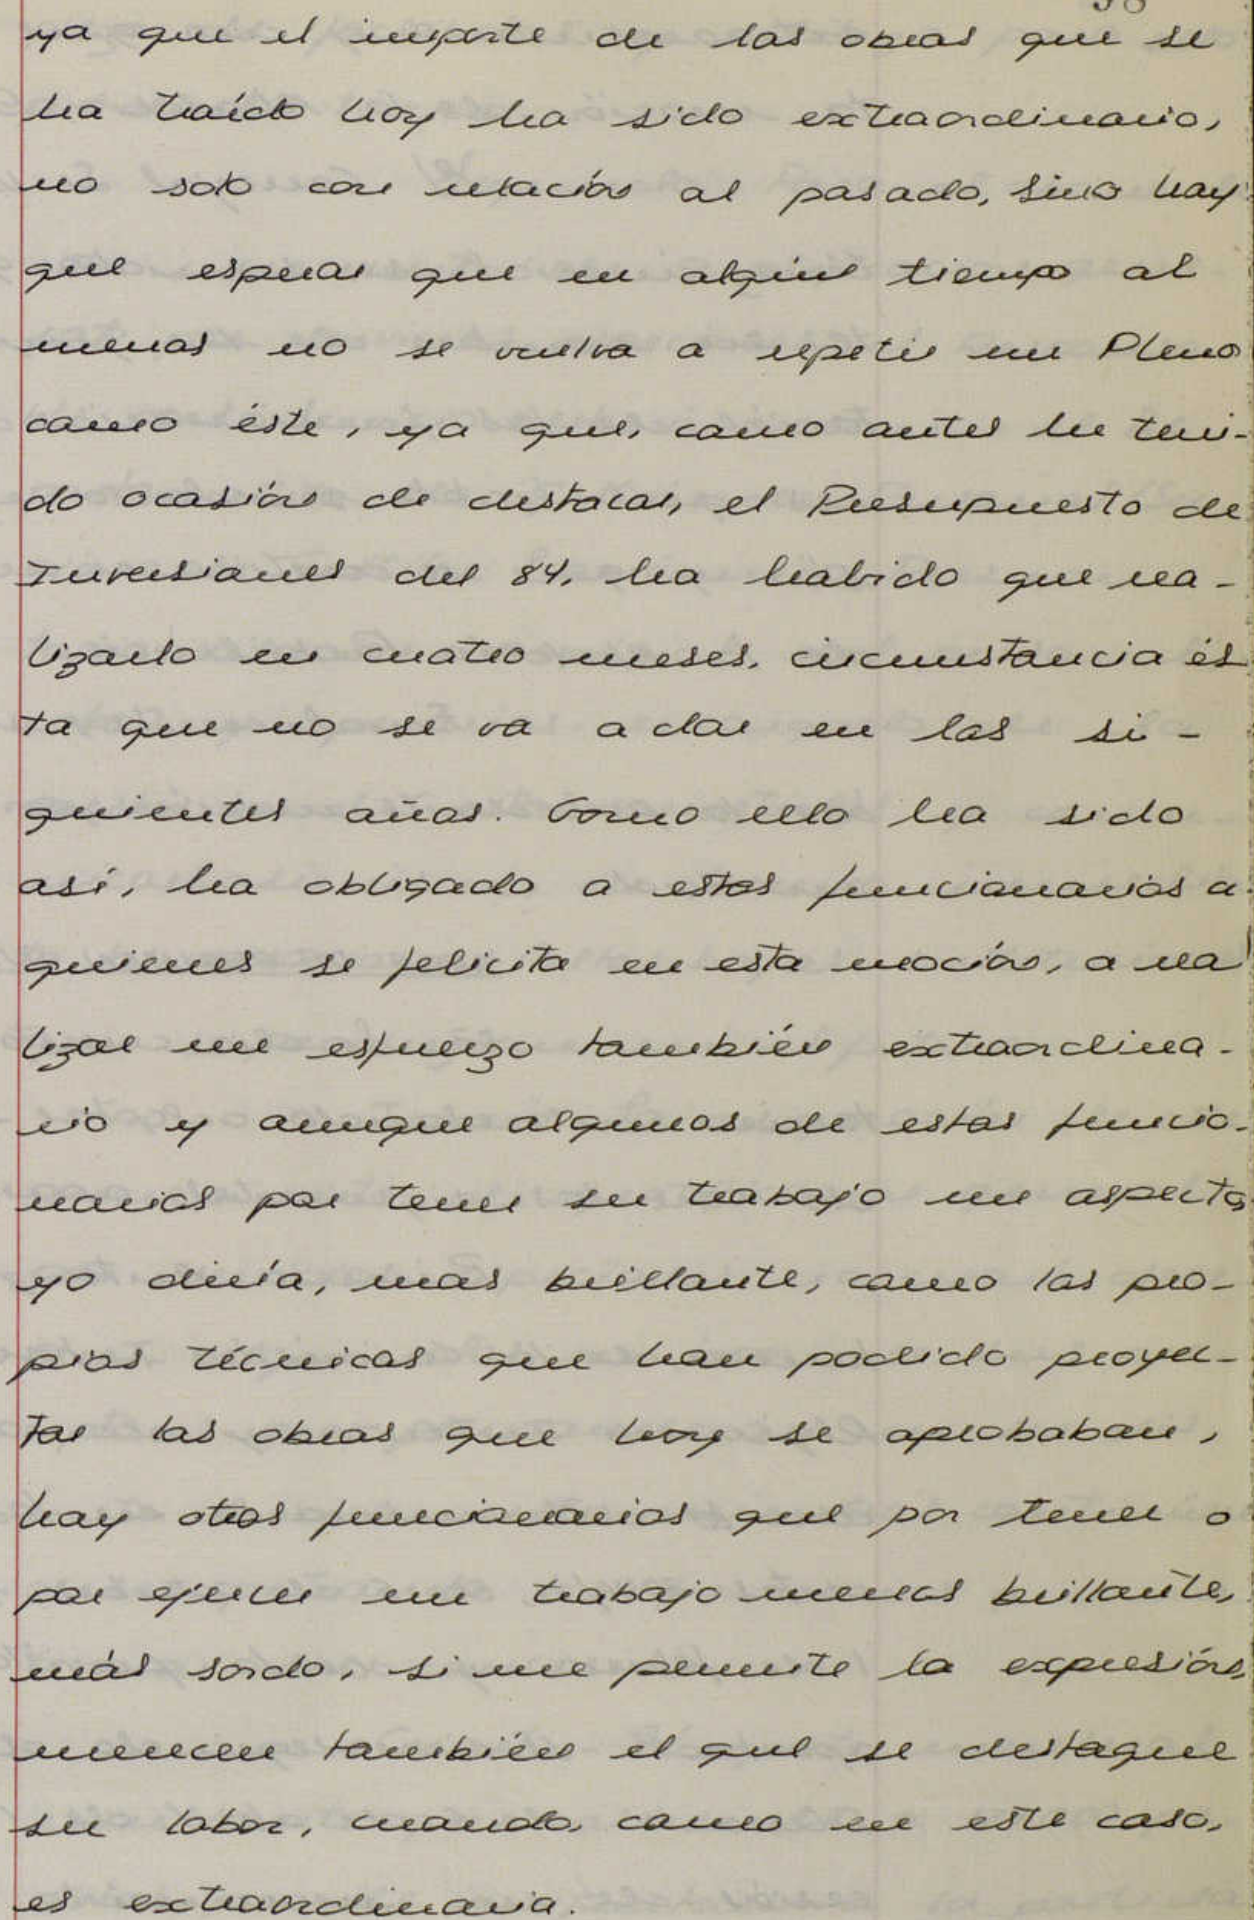 ya que el importe de las obras que se
ha traído hoy ha sido extraordinario,
no solo con relación al pasado, sino hay
que esperar que en algún tiempo al
menos no se vuelva a repetir un Pleno
como éste, ya que, como antes he teni-
do ocasión de destacar, el Presupuesto de
Inversiones del 84, ha habido que rea-
lizarlo en cuatro meses, circunstancia és
ta que no se va a dar en los si-
guientes años. Como ello ha sido
así, ha obligado a estos funcionarios a
quienes se felicita en esta moción, a rea
lizar un esfuerzo también extraordina-
rio y aunque algunos de estos funcio-
narios por tener su trabajo un aspecto
yo diría, mas brillante, como los pro-
pios técnicos que han podido proyec-
tar las obras que hoy se aprobaban,
hay otros funcionarios que por tener o
por ejercer un trabajo menos brillante,
más sordo, si me permite la expresión,
merecen también el que se destaque
su labor, cuando, como en este caso,
es extraordinaria.